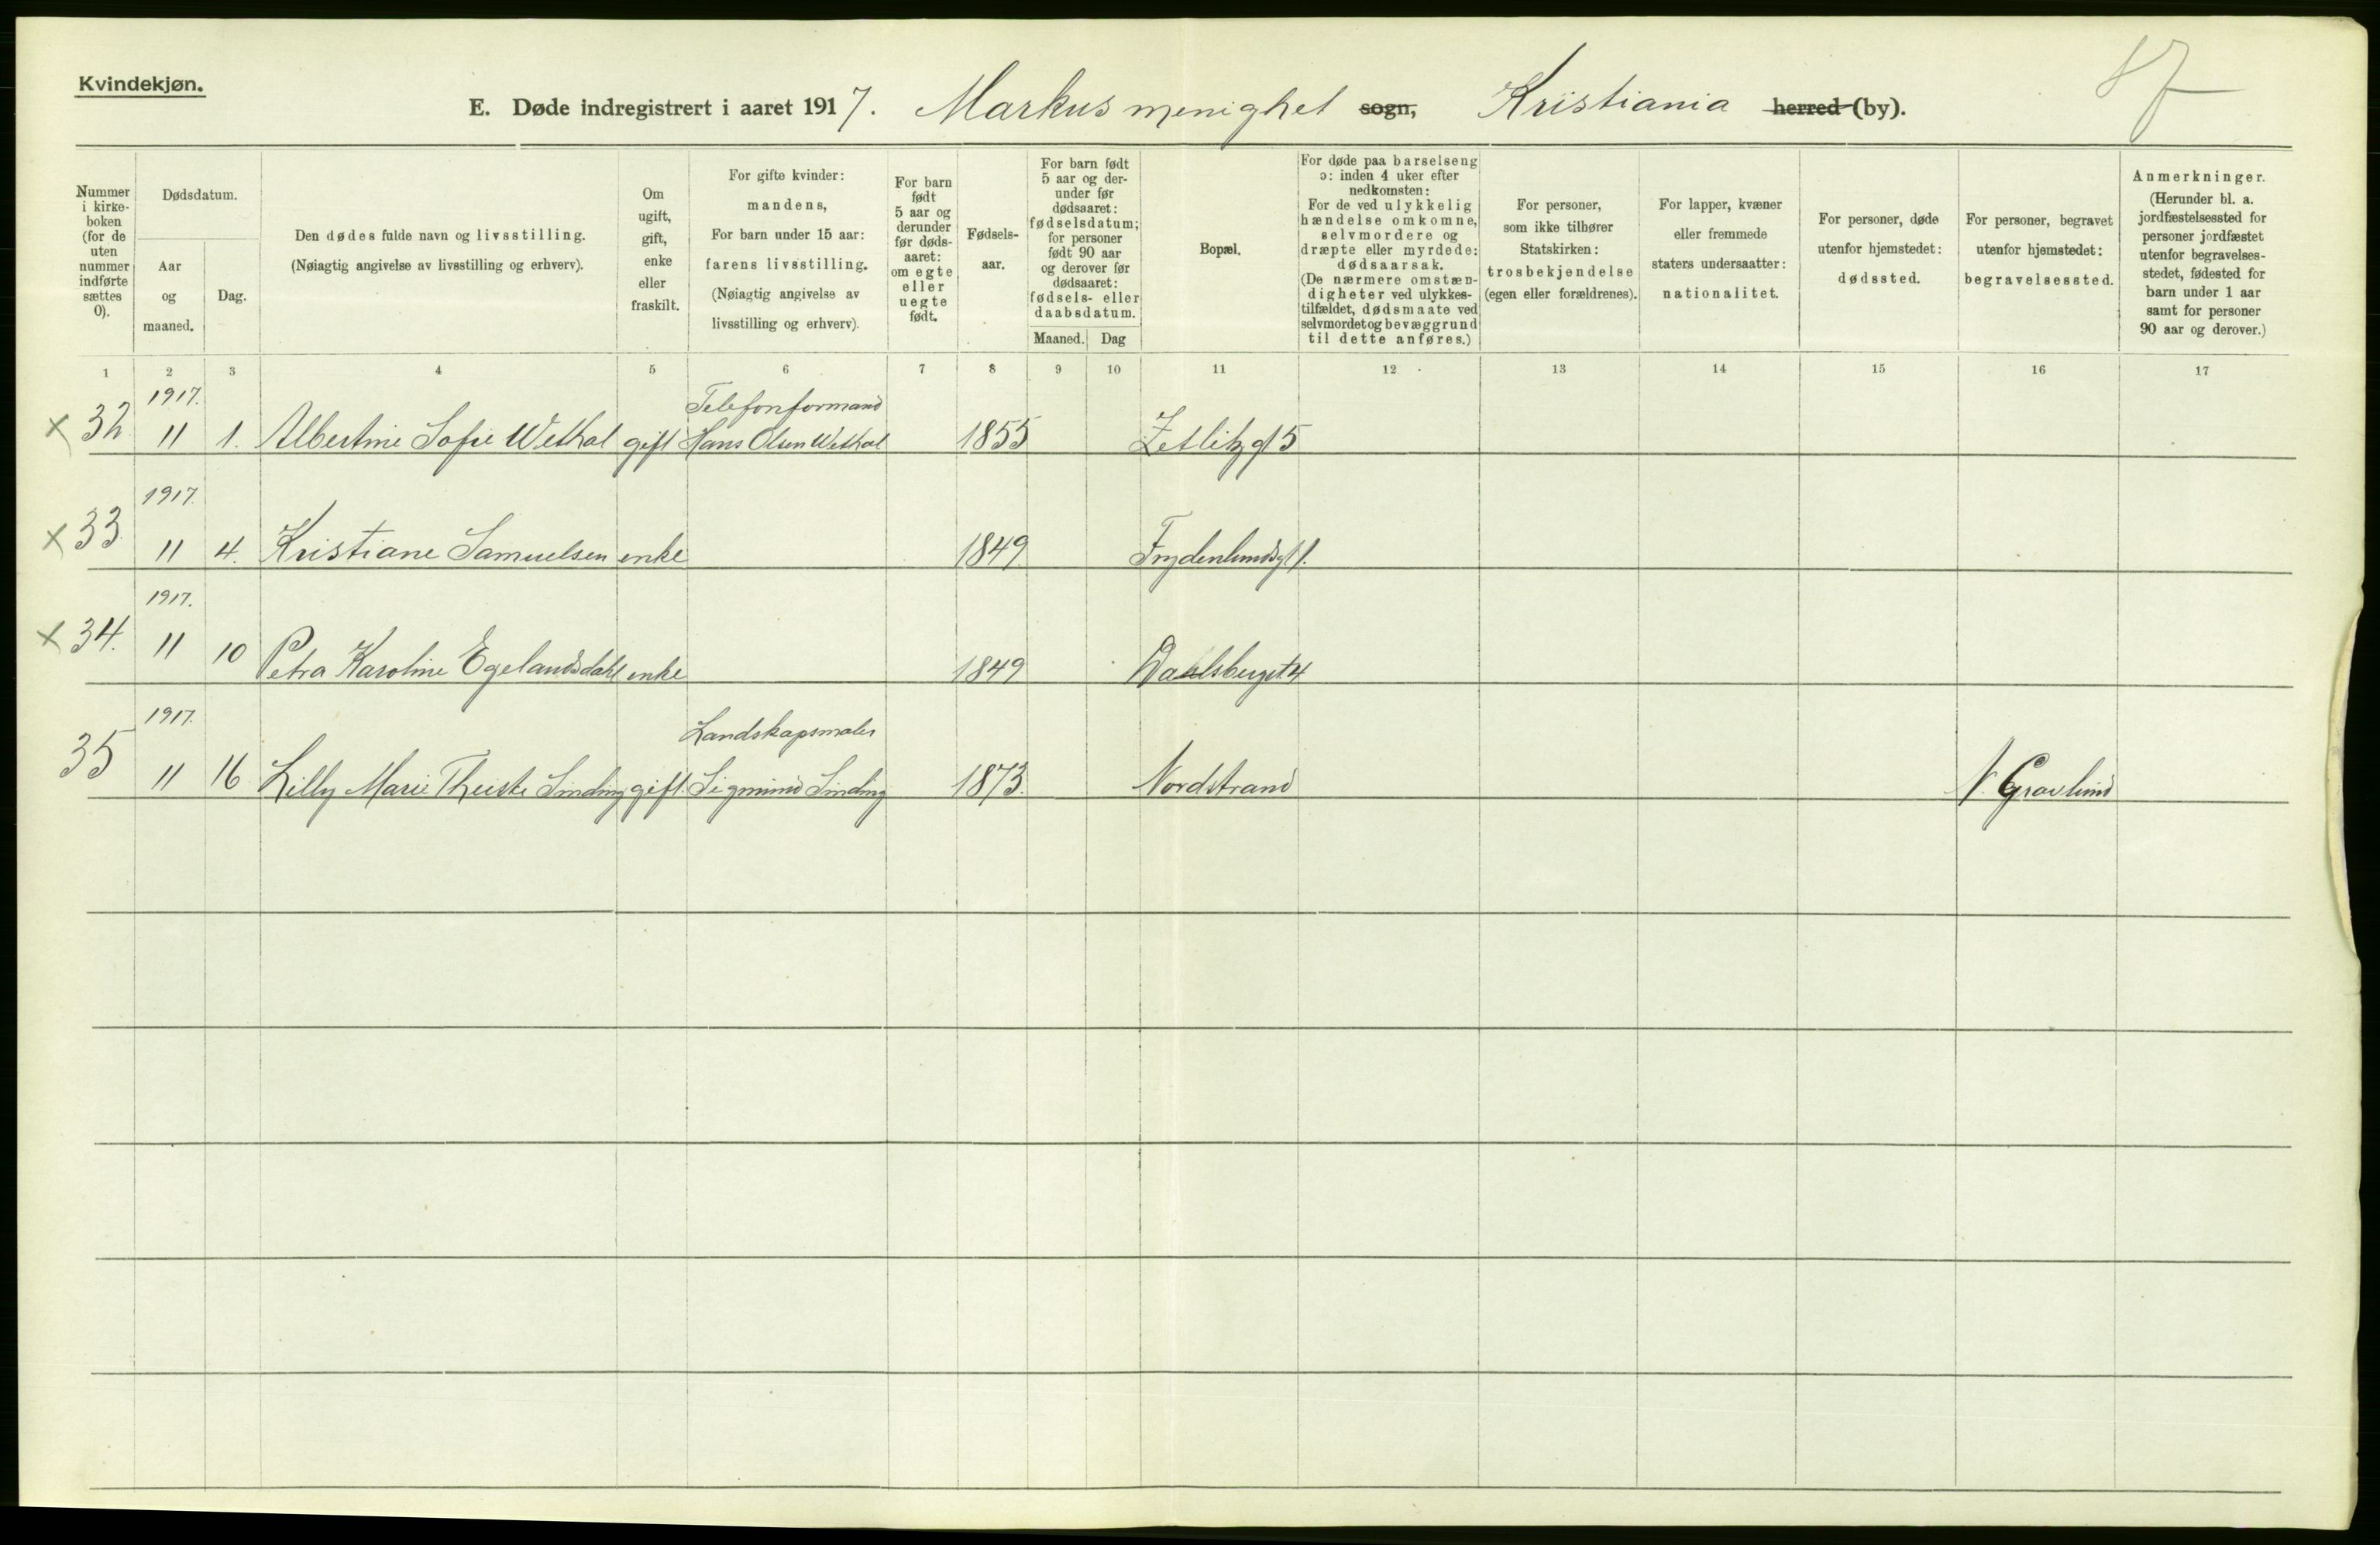 Kvindekjøn.
E. Døde indregistrert i aaret 1917. Markus menighet sogn, Kristiania herred (by).
Nummer i kirke-boken (for de uten nummer indførte sættes 0).
Dødsdatum.
Aar og maaned.
Dag.
Den dødes fulde navn og livsstilling.
(Nøiagtig angivelse av livsstilling og erhverv).
Om ugift, gift, enke eller fraskilt.
For gifte kvinder: mandens,
For barn under 15 aar: farens livsstilling.
(Nøiagtig angivelse av livsstilling og erhverv).
For barn født 5 aar og derunder før døds-aaret: om egte eller uegte født.
Fødsels-aar.
For barn født 5 aar og der-under før dødsaaret: fødselsdatum; for personer født 90 aar og derover før dødsaaret: fødsels- eller daabsdatum.
Maaned. Dag
Bopæl.
For døde paa barselseng ɔ: inden 4 uker efter nedkomsten: For de ved ulykkelig hændelse omkomne, selvmordere og dræpte eller myrdede: dødsaarsak. (De nærmere omstæn-digheter ved ulykkes-tilfældet, dødsmaate ved selvmordet og bevæggrund til dette anføres.)
For personer, som ikke tilhører Statskirken: trosbekjendelse (egen eller forældrenes).
For lapper, kvæner eller fremmede staters undersaatter: nationalitet.
For personer, døde utenfor hjemstedet: dødssted.
For personer, begravet utenfor hjemstedet: begravelsessted.
Anmerkninger. (Herunder bl. a. jordfæstelsessted for personer jordfæstet utenfor begravelses-stedet, fødested for barn under 1 aar samt for personer 90 aar og derover.)
1 2 3 4 5 6 7 8 9 10 11 12 13 14 15 16 17
1917. Telefonformand
x 32 11 1. Albertine Sofie Wethal gift Hans Olsen Wethal 1855 Zetlitz gt 5
1917.
x 33 11 4. Kristiane Samuelsen enke 1849 Frydenlundsgt 1.
1917.
x 34. 11 10 Petra Karoline Egelandsdahl enke 1849 Dahlsbergst 4
1917. Landskapsmaler
35 11 16 Lilly Marie Theiste Sinding gift. Sigmund Sinding 1873. Nordstrand V. Gravlund